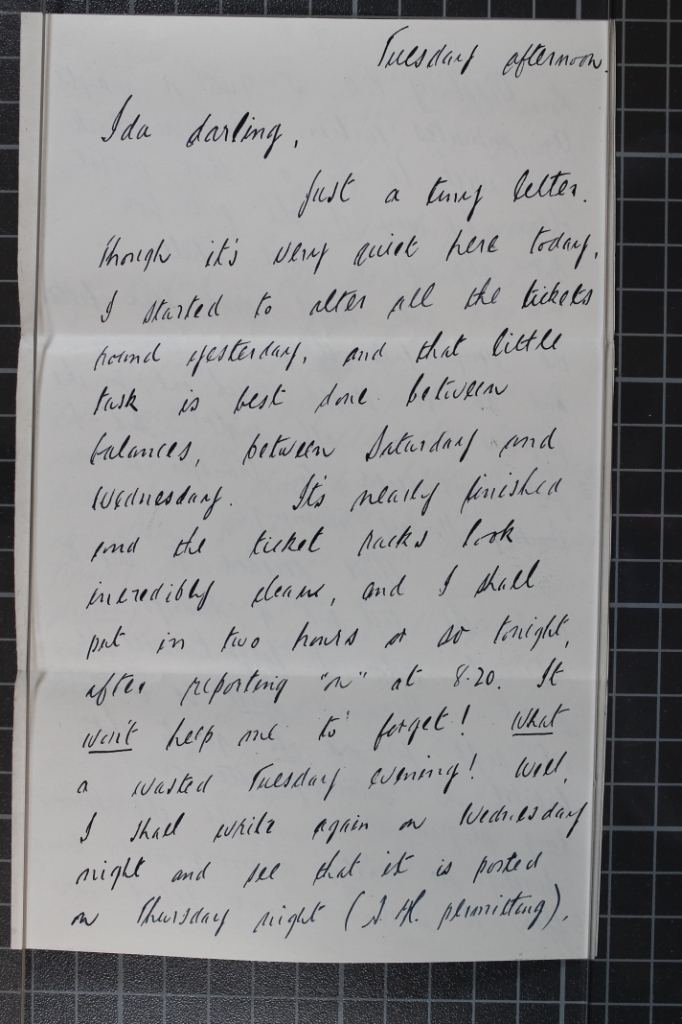 Tuesday afternoon.
Ida darling,
Just a tiny letter.
Though it's very quiet here today,
I started to alter all the tickets
round yesterday, and that little
task is best done between
balances, between Saturday and
Wednesday. It's nearly finished
and the ticket racks look
incredibly clean, and I shall
put in two hours or so tonight,
after reporting "on" at 8.20. It
won't help me to forget! What
a wasted Tuesday evening! Well,
I shall write again on Wednesday
night and see that it is posted
on Thursday night (S.H. permitting).